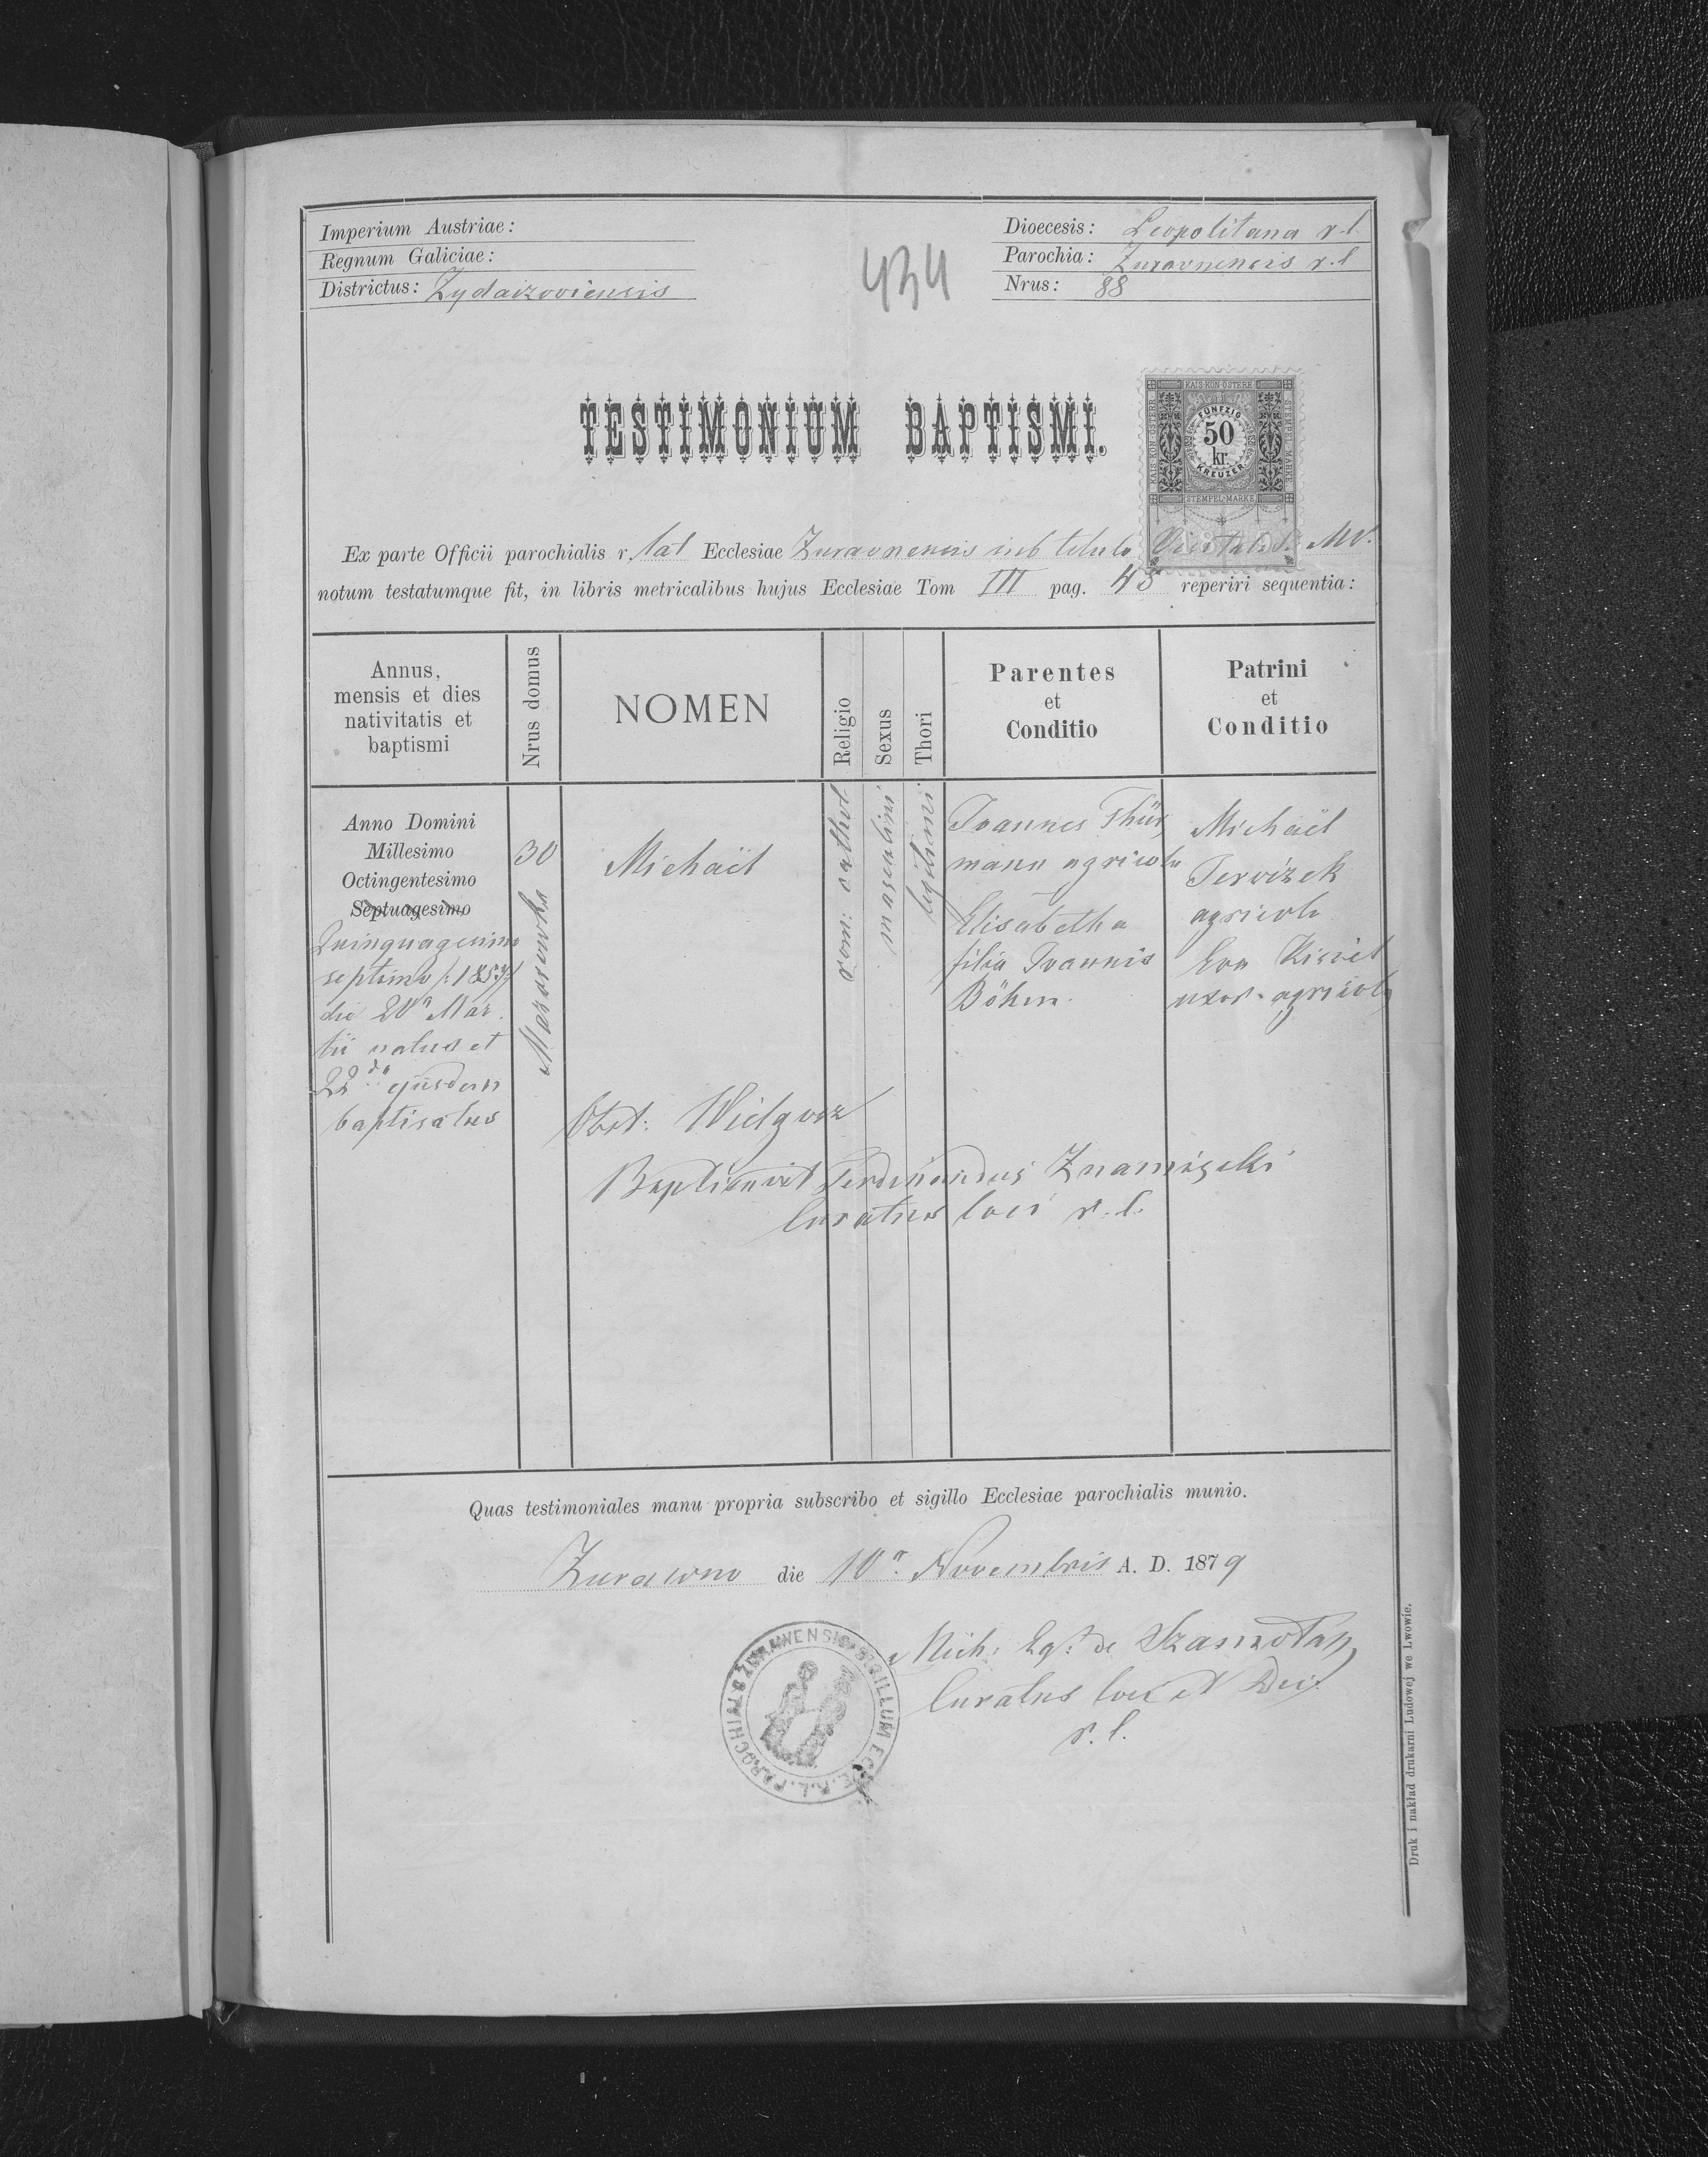 Imperium Austriae:
Regnum Galiciae:
Districtus: Zydaczoviensis
434
Dioecesis: Leopolitana r.l.
Parochia: Zuravnensis r.l
Nrus: 88
TESTIMONIUM BAPTISMI.
KAIS. KÖN. ÖSTERR.
FÜNFZIG
50
kr
KREUZER
STEMPEL-MARKE
Ex parte Officii parochialis r. lat Ecclesiae Zuravnensis sub titulo
notum testatumque fit, in libris metricalibus hujus Ecclesiae Tom III pag. 45 reperiri sequentia:
Annus, mensis et dies nativitatis et baptismi
Nrus domus
NOMEN
Religio
Sexus
Thori
Parentes et Conditio
Patrini et Conditio
Anno Domini
Millesimo
Octingentesimo
Septuagesimo
Quinquagesimo
septimo /:1857/
die 20a Mar
tii natus et
22da ejusdem
baptisatus
30
Mazurowka
Michaël
rom: cathol
masculini
legitimi
Joannes Thür
mann agricola
Elisabetha
filia Joannis
Böhm.
Michaël
agricola
Eva
uxor agricola
Obst: Wielgosz
Baptisavit Ferdinandus Znamięcki
Curatus loci r. l.
Quas testimoniales manu propria subscribo et sigillo Ecclesiae parochialis munio.
Zurawno die 10a Novembris A. D. 1879
Mich: Eq. de Szamota
Curatus loci et Dec.
r. l.
SIGILLUM ECCLE. R.L. PAROCHIALIS ŻURAWNENSIS
Druk i nakład drukarni Ludowej we Lwowie.